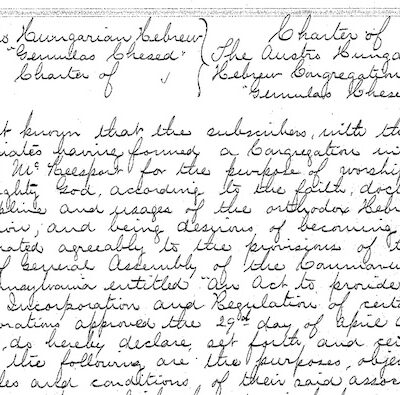 Hungarian Hebrew
"Gemulas Chesed"
Charter of
Charter of
The Austro Hunga
Hebrew Congregation
"Gemulas Chese
t known that the subscribers, with the
iates having formed a Congregation in
Mc Keesport for the purpose of worship
ighty God, according to the faith, doc
pline and usages of the orthodox Heb
ion, and being desirous of becoming
rated agreeably to the provisions of t
of General Assembly of the Commonw
nnsylvania entitled "An Act to provide
Incorporation and Regulation of cert
orations approved the 29th day of April
, do hereby declare, set forth, and
the following are the purposes, obje
les and conditions, of their said assoc